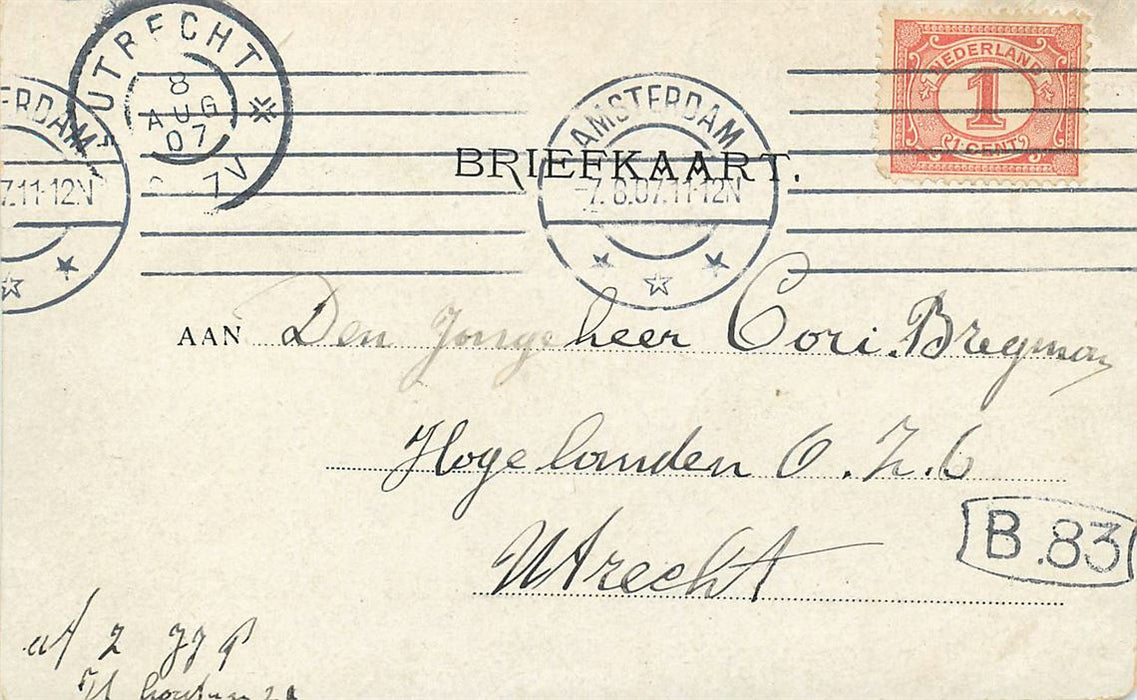 UTRECHT
8
AUG
07
7V
ERDAM
7.11-12N
AMSTERDAM
7.8.07.11-12N
NEDERLAND
1
1 CENT
BRIEFKAART.
AAN Den Jongeheer Cori. Bregman
Hogelanden O.Z. 6
Utrecht
B.83